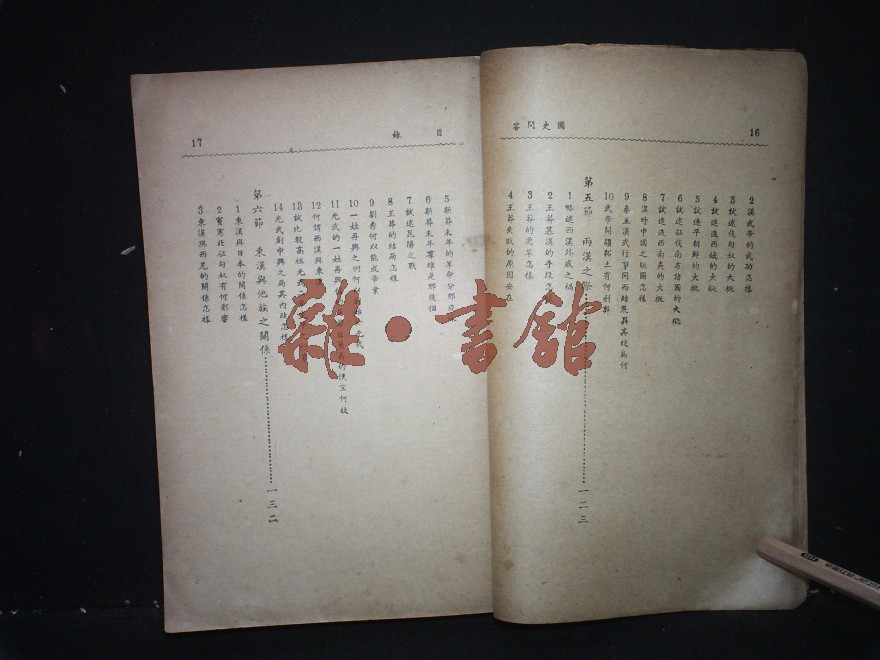 16
國史問答
2 漢武帝的武功怎樣
3 試述伐匈奴的大概
4 試述通西域的大概
5 試述平朝鮮的大概
6 試述征伐南方諸國的大概
7 試述通西南夷的大概
8 漢時中國之版圖怎樣
9 秦皇漢武行事同而結果異其故為何
10 武帝開疆拓土有何利弊
第五節 兩漢之 一二三
1 略述西漢外戚之禍
2 王莽篡漢的手段怎
3 王莽的變革怎樣
4 王莽失敗的原因安在
目錄
17
5 新莽末年的革命分那
6 新莽末年羣雄是那幾個
7 試述昆陽之戰
8 王莽的結局怎樣
9 劉秀何以能成帝業
10 一姓再興之例何以
11 光武的一姓再興 的便宜何故
12 何謂西漢與東漢
13 試比較高祖光武
14 光武創中興之局其內政怎樣
第六節 東漢與他族之關係 一三二
1 東漢與日本的關係怎樣
2 竇憲北征匈奴有何影響
3 東漢與西羌的關係怎樣
雜·書館